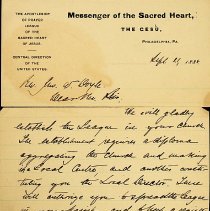 THE APOSTLESHIP
OF PRAYER
LEAGUE
OF THE
SACRED HEART
OF JESUS.
CENTRAL DIRECTION
OF THE
UNITED STATES
Messenger of the Sacred Heart,
THE GESÙ,
PHILADELPHIA, PA.
Sept 21, 188
Rev. Jno. D. Boyle
Dear Rev. Sir:
We will gladly
establish the League in your Church.
The establishment requires a diploma
aggregating the Church and making
it a Local Centre, and another consti-
tuting you the Local Director. These
will entitle you to spread the League
in your